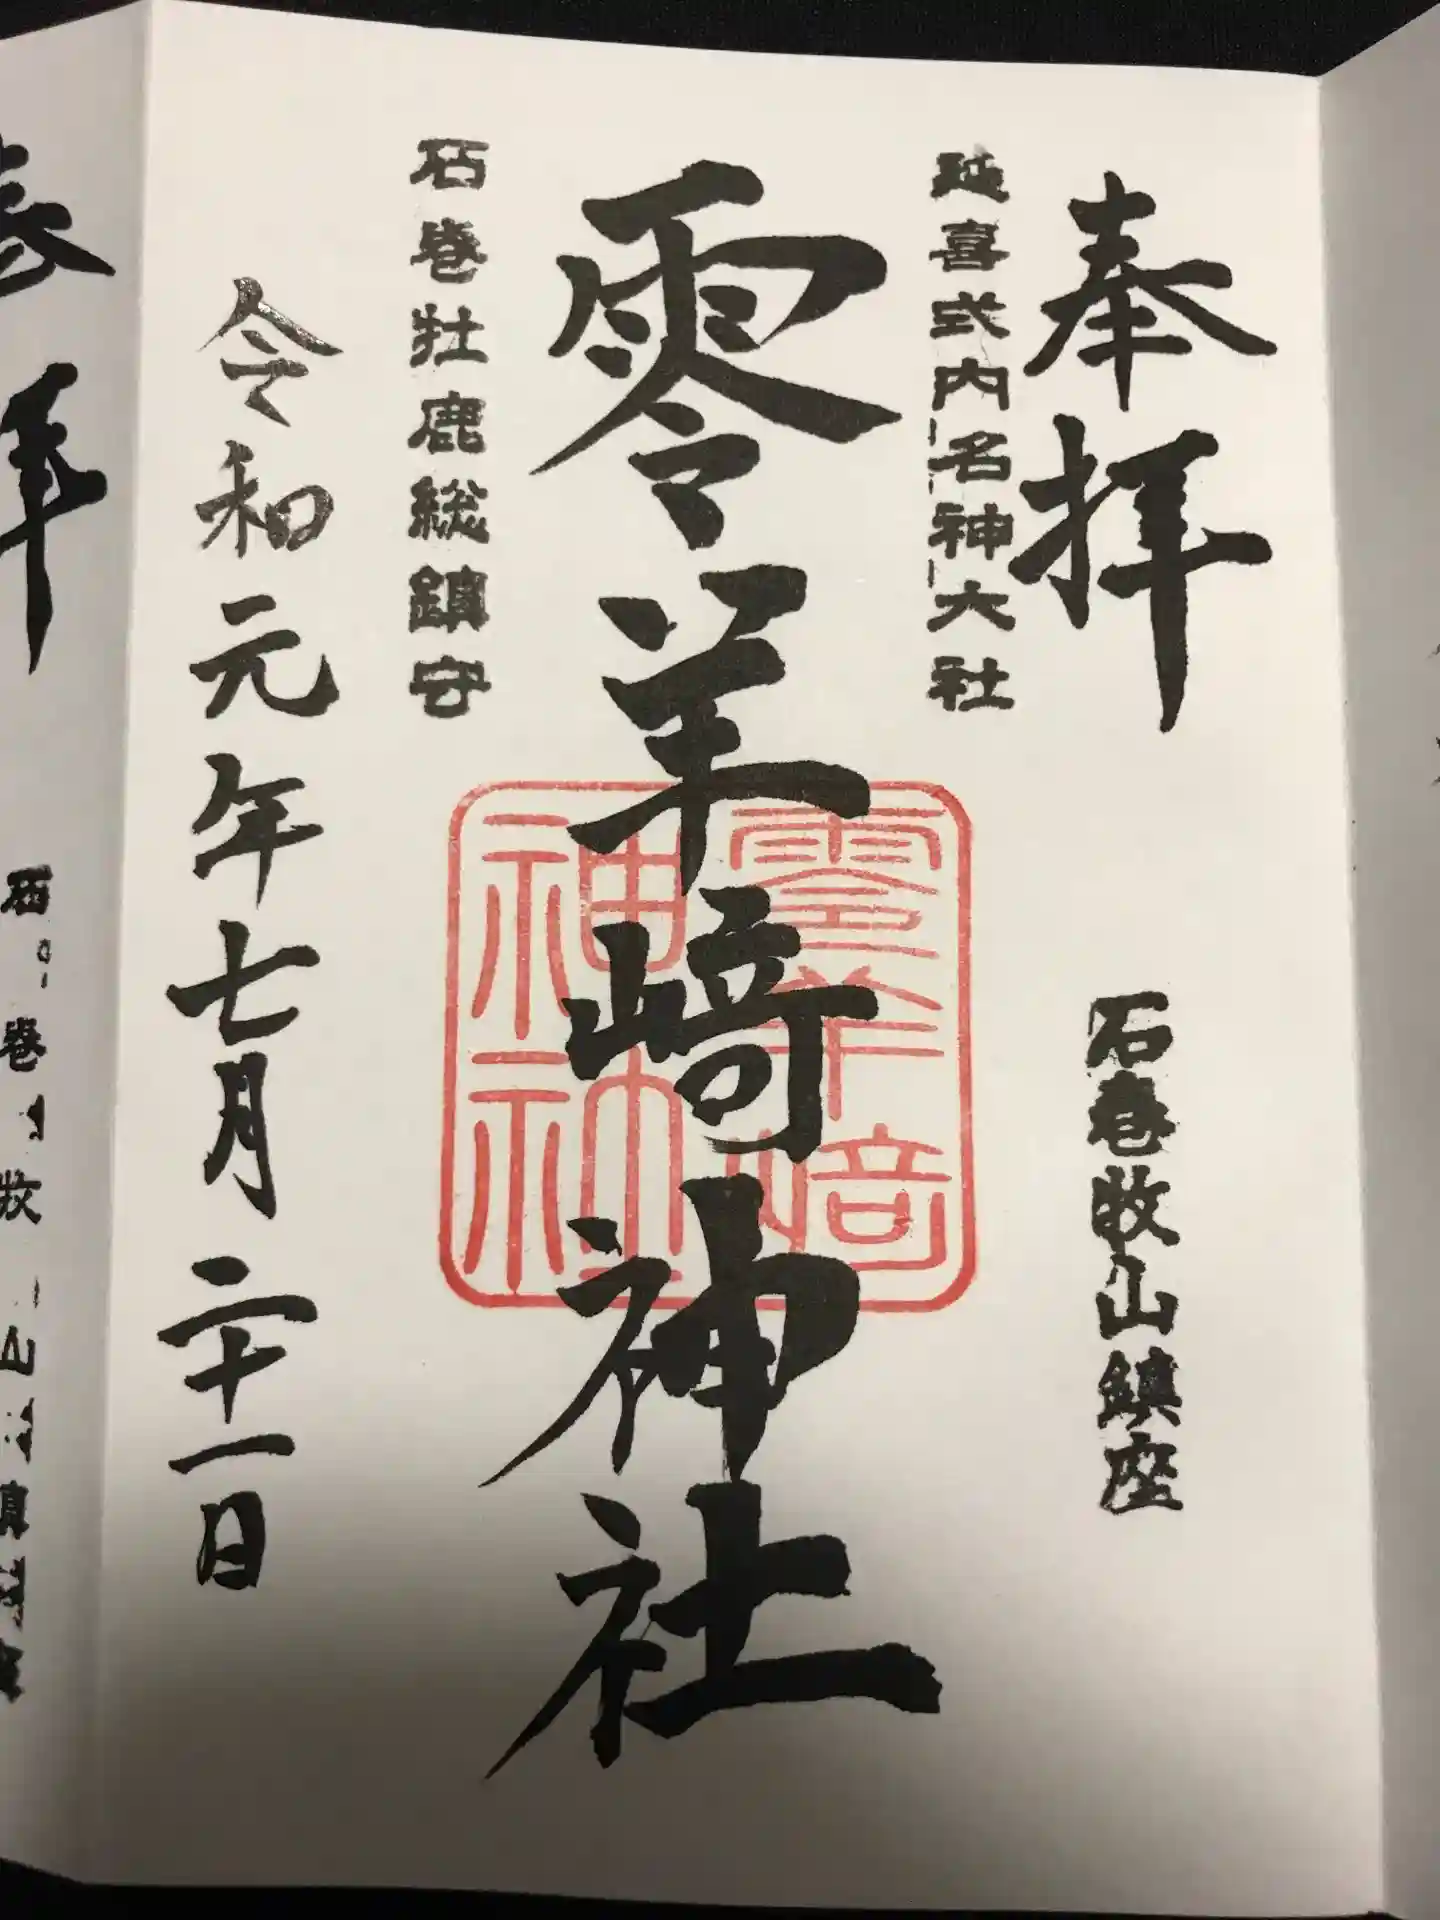 奉拝
石巻牧山鎮座
延喜式内名神大社
零羊崎神社
零羊崎
神社
石巻牡鹿総鎮守
令和元年七月二十一日
拝
石巻牧山